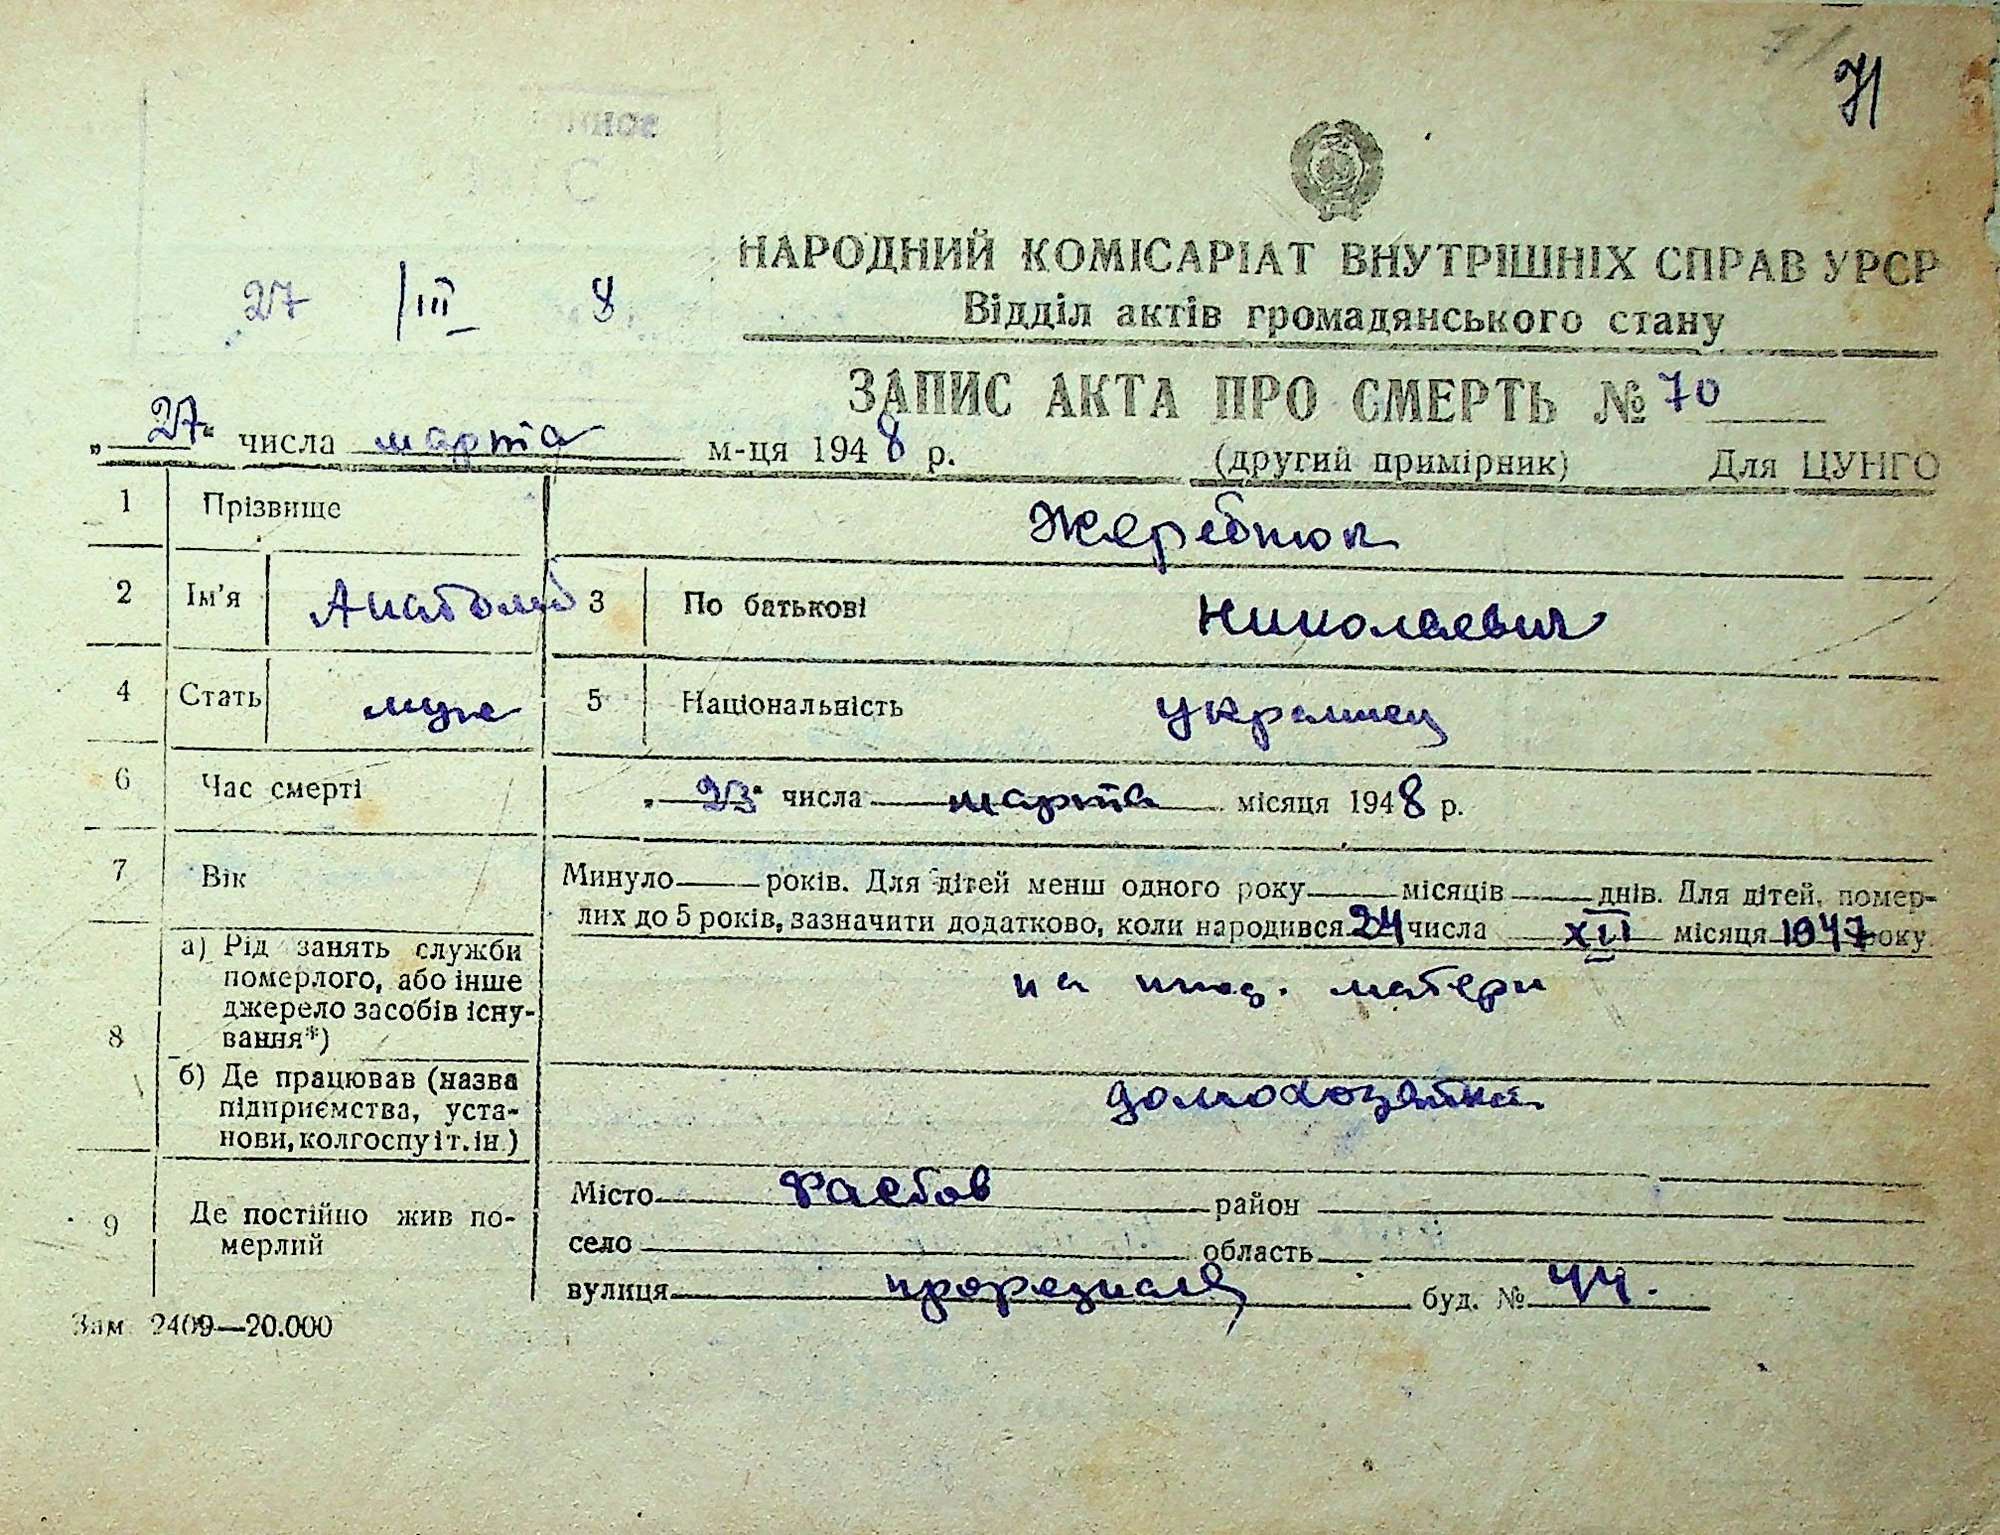 71
НАРОДНИЙ КОМІСАРІАТ ВНУТРІШНІХ СПРАВ УРСР
Відділ актів громадянського стану
27 /III 8
ЗАПИС АКТА ПРО СМЕРТЬ № 70
„27“ числа марта м-ця 1948 р. (другий примірник) Для ЦУНГО
1 Прізвище Жеребнюк
2 Ім'я Анатолий 3 По батькові Николаевич
4 Стать муж 5 Національність украинец
6 Час смерті „23“ числа марта місяця 1948 р.
7 Вік Минуло років. Для дітей менш одного року місяців днів. Для дітей, помер-
лих до 5 років, зазначити додатково, коли народився 24 числа XII місяця 1947 року
8 а) Рід занять служби померлого, або інше джерело засобів існу-вання*) на ижд. матери
б) Де працював (назва підприємства, уста-нови, колгоспу і т. ін.) домохозяйка
9 Де постійно жив по-мерлий Місто Фастов район
село область
вулиця прорезная буд. № 44.
Зам 2409—20.000